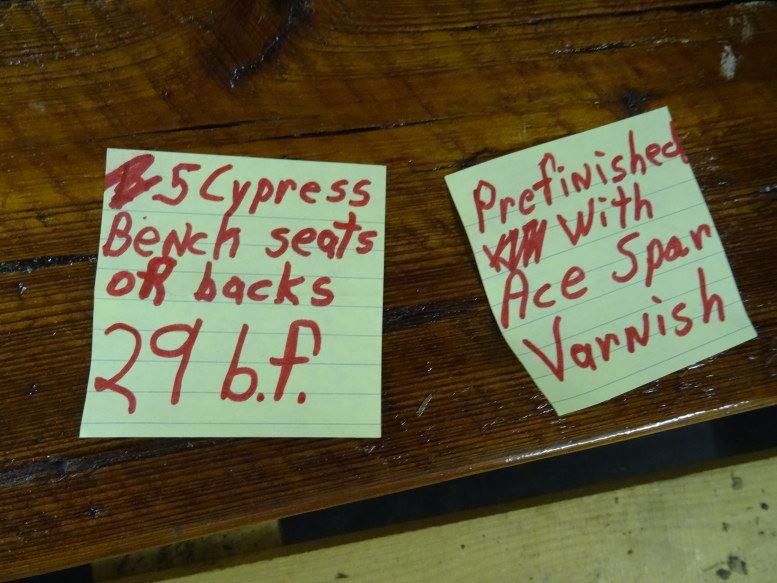 5 Cypress
Bench seats
oR backs
29 b.f.
Prefinished
With
Ace Spar
Varnish